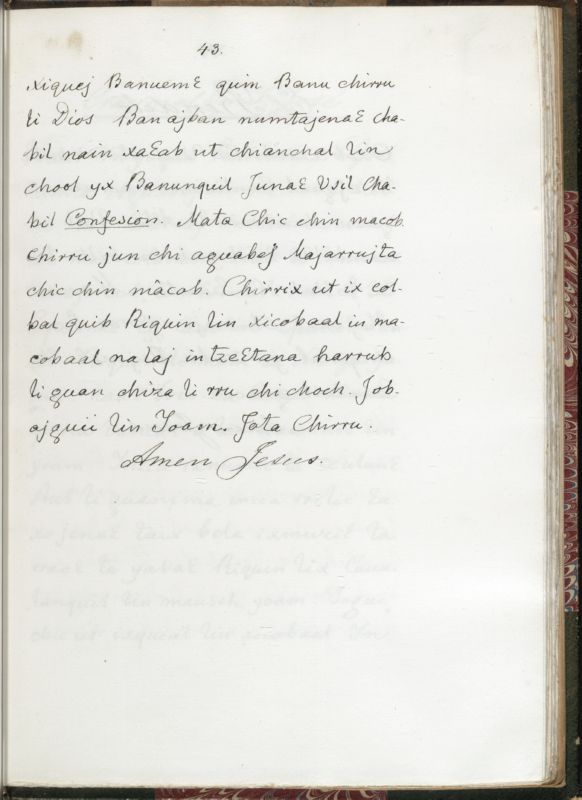 43.
xiquej Banuemꜫ quin Banu chirru
li Dios Ban ajban numtajenaꜫ cha-
bil nain xaꜫab ut chianchal lin
chool yx Banunquil Junaꜫ Vsil Cha-
bil Confesion. Mata Chic chin macob
Chirru jun chi aguabej Majarrujta
chic chin mâcob. Chirrix ut ix col-
bal quib Riquin lin xicobaal in ma-
cobaal nalaj in tzeꜫtana harrub
li guan chiza li rru chi choch. Job-
ajguii lin Yoam. Jata Chirru.
Amen Jesus.